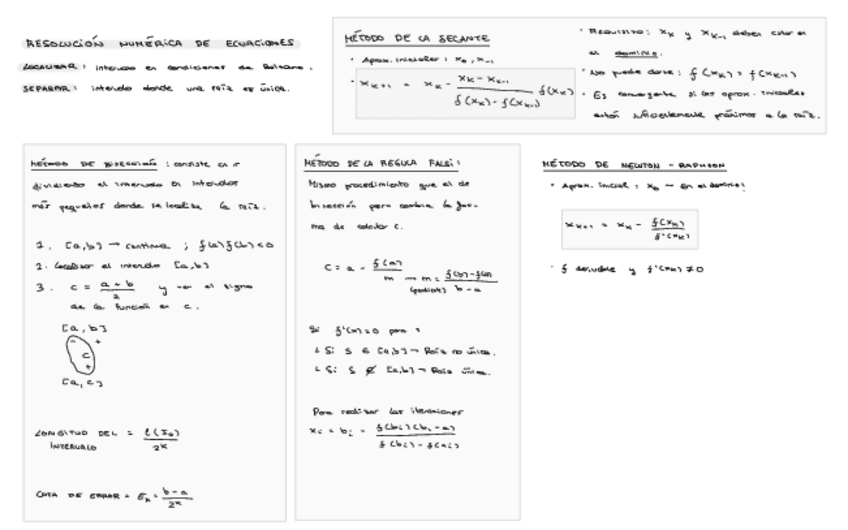 RESOLUCIÓN NUMÉRICA DE ECUACIONES
LOCALIZAR: intervalo en condiciones de Bolzano.
SEPARAR: intervalo donde una raíz es única.
MÉTODO DE LA SECANTE
· Aprox. iniciales: x₀, x₋₁
· xₖ₊₁ = xₖ - (xₖ - xₖ₋₁) / (f(xₖ) - f(xₖ₋₁)) f(xₖ)
· Requisito: xₖ y xₖ₋₁ deben estar en
el dominio.
· No puede darse: f(xₖ) = f(xₖ₋₁)
· Es convergente si las aprox. iniciales
están suficientemente próximas a la raíz.
MÉTODO DE BISECCIÓN: consiste en ir
dividiendo el intervalo en intervalos
más pequeños donde se localiza la raíz.
1. [a,b] → continua ; f(a)f(b) < 0
2. Localizar el intervalo [a,b]
3. c = (a + b) / 2 y ver el signo
de la función en c.
[a,b]
- +
c
+
[a,c]
LONGITUD DEL = ℓ(I₀) / 2ᵏ
INTERVALO
COTA DE ERROR = Eₖ = (b - a) / 2ᵏ
MÉTODO DE LA REGULA FALSI:
Mismo procedimiento que el de
bisección pero cambia la for-
ma de calcular c.
c = a - f(a) / m → m = (f(b) - f(a)) / (b - a)
(pendiente)
Si f'(x) = 0 para
↳ Si S ∈ [a,b] → Raíz no única.
↳ Si S ∉ [a,b] → Raíz única.
Para realizar las iteraciones
xᵢ = bᵢ - f(bᵢ)(bᵢ - a) / (f(bᵢ) - f(aᵢ))
MÉTODO DE NEWTON - RAPHSON
· Aprox. inicial: x₀ → en el dominio!
xₖ₊₁ = xₖ - f(xₖ) / f'(xₖ)
· f derivable y f'(xₖ) ≠ 0